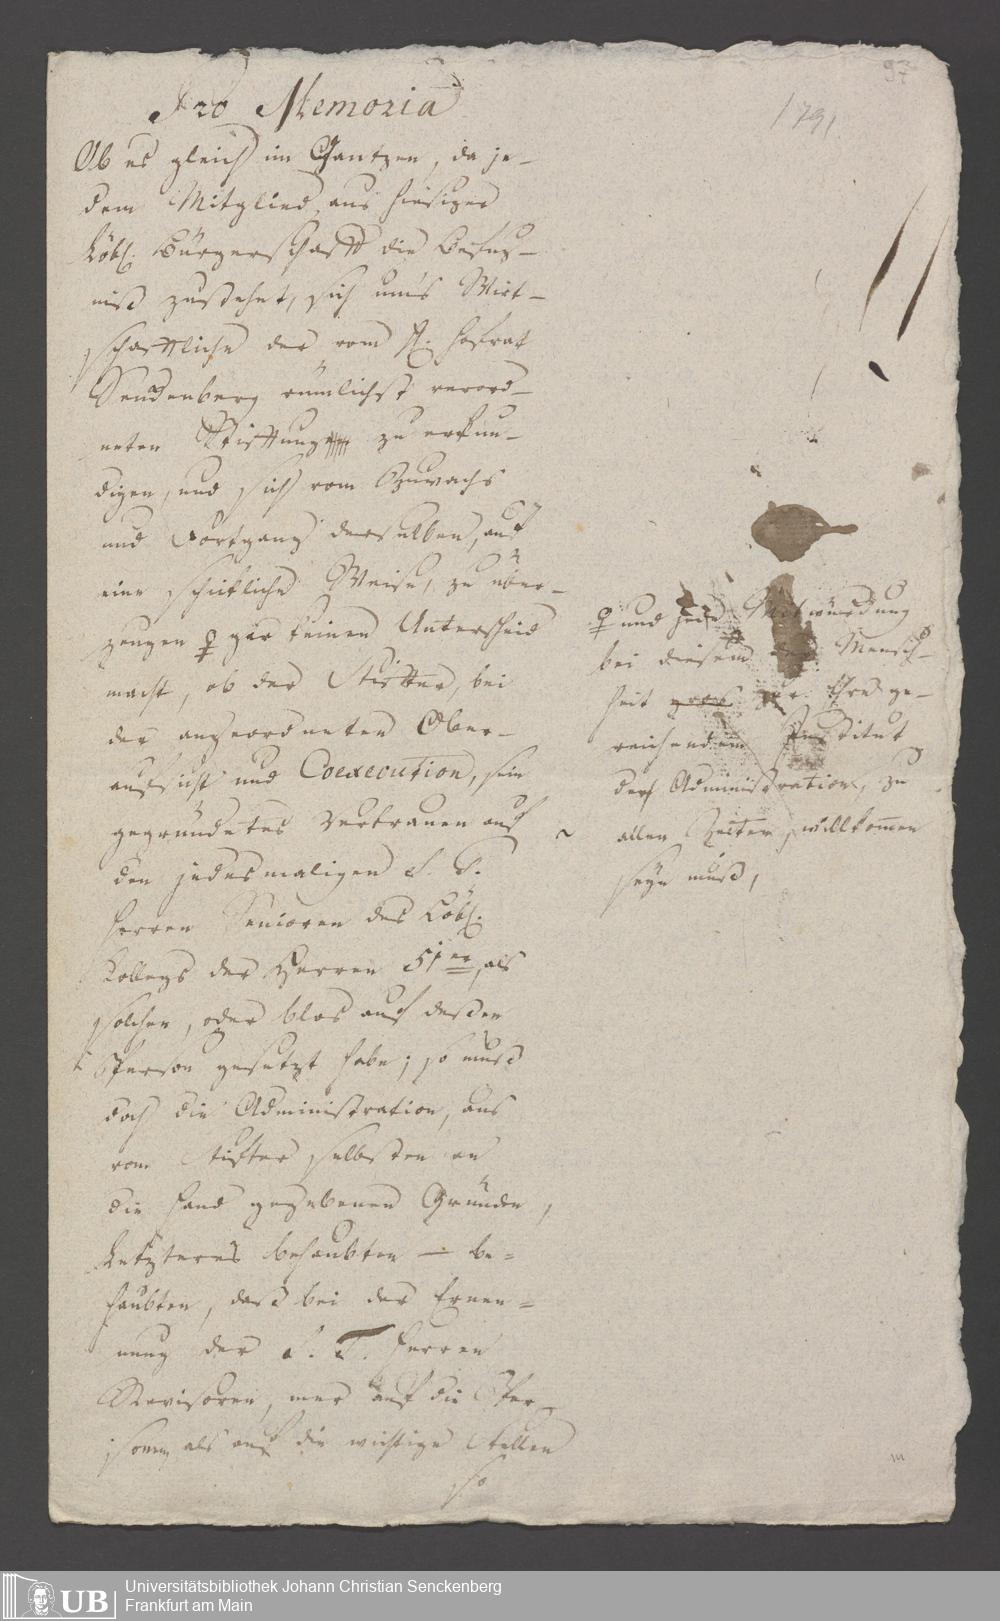 97
1791
Pro Memoria
Ob es gleich im Gantzen, da je-
dem Mitglied aus hiesiger
Löbl. Bürgerschafft die Befug-
niß zustehet, sich um's Wirt-
schafftliche der vom H. Hofrat
Senckenberg rümlichst verord-
neten Stifftung zu erkun-
digen, und sich vom Zuwachs
und Fortgang derselben, auf
eine schickliche Weise, zu über-
zeugen gar keinen Unterscheid
macht, ob der Stiffter, bei
der angeordneten Ober-
aufsicht und Coexecution, sein
gegründetes Vertrauen auf
den jedesmaligen S. T.
Herren Senioren des Löbl.
Kollegs der Herren 51er, als
solchen, oder blos auf deßen
Person gesetzt habe; so muß
doch die Administration, aus
vom Stifter selbsten an
die Hand gegebenen Gründen,
Letzteres behaubten — be-
haubten, daß bei der Ernen-
nung der S. T. Herren
Revisoren, mer auf die Per-
sonen als auf die wichtige Stellen
so
und jede Mitwürckung
bei diesem der Mensch-
heit zur Ehre ge-
reichendem Institut
der Administration, zu
allen Zeiten, willkomen
seyn muß,
Universitätsbibliothek Johann Christian Senckenberg
Frankfurt am Main
UB